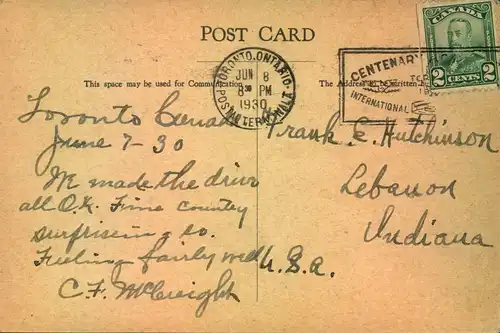 POST CARD
CANADA
2 CENTS 2
TORONTO, ONTARIO
JUN 8
8 30 PM
1930
POSTAL TERMINAL A
CENTENARY
INTERNATIONAL
This space may be used for Communication
The Address to be written
Toronto Canada
June 7-30
We made the drive
all O.K. Fine country
surprising so.
Feeling fairly well
C. F. McCreight
Frank E. Hutchinson
Lebanon
Indiana
U.S.A.